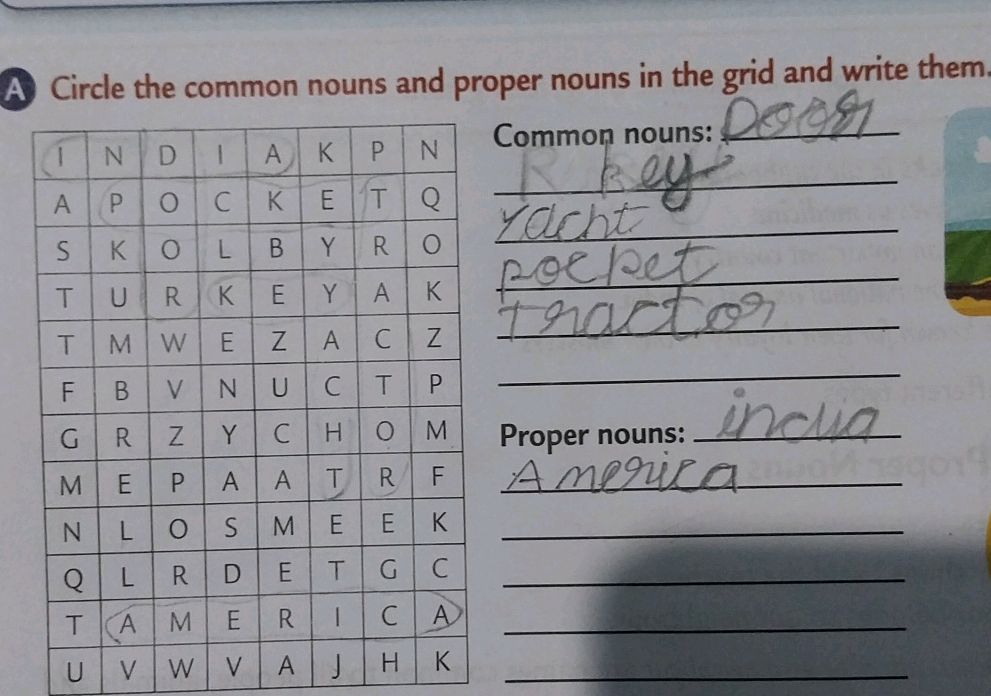 A Circle the common nouns and proper nouns in the grid and write them.
I N D I A K P N
A P O C K E T Q
S K O L B Y R O
T U R K E Y A K
T M W E Z A C Z
F B V N U C T P
G R Z Y C H O M
M E P A A T R F
N L O S M E E K
Q L R D E T G C
T A M E R I C A
U V W V A J H K
Common nouns: Door
key
Yacht
pocket
tractor
Proper nouns: india
America